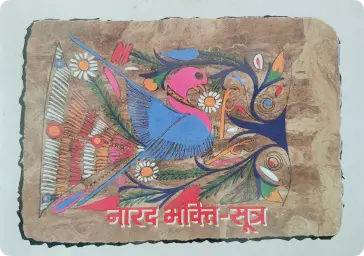 नारद भक्ति-सूत्र